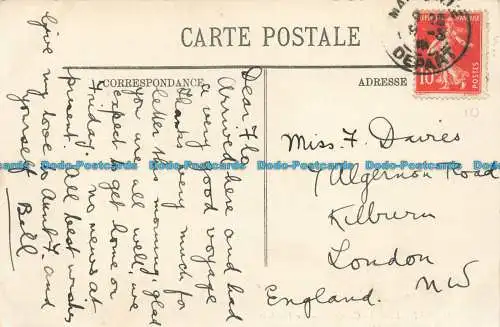 CARTE POSTALE
CORRESPONDANCE
ADRESSE
Dear Flo
Arrived here and had
a very good voyage
Thanks very much for
letter this morning. Glad
you are all well, we
expect to get home on
Friday. no news at
present. All best wishes
Give my love to Aunt F. and
Yourself Bell
Miss. F. Davies
7 Algernon Road
Kilburn
London
NW
England.
RÉPUBLIQUE FRANÇAISE
10
POSTES
DEPART
10
Dodo-Postcards Dodo-Postcards Dodo-Postcards Dodo-Postcards Dodo-Postcards